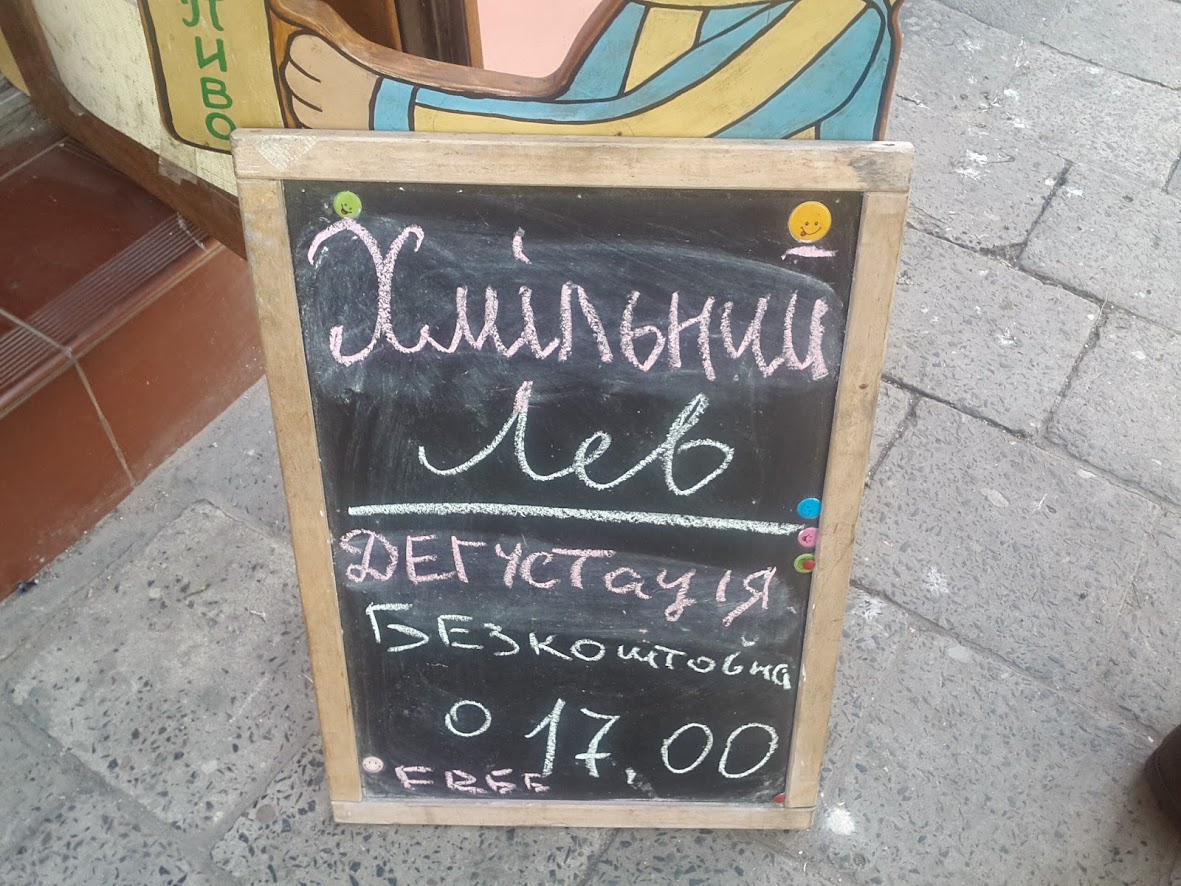 пиво
Хмільний
Лев
ДЕГУСТаЦІЯ
БЕЗКОШТОВНА
о 17.00
FREE